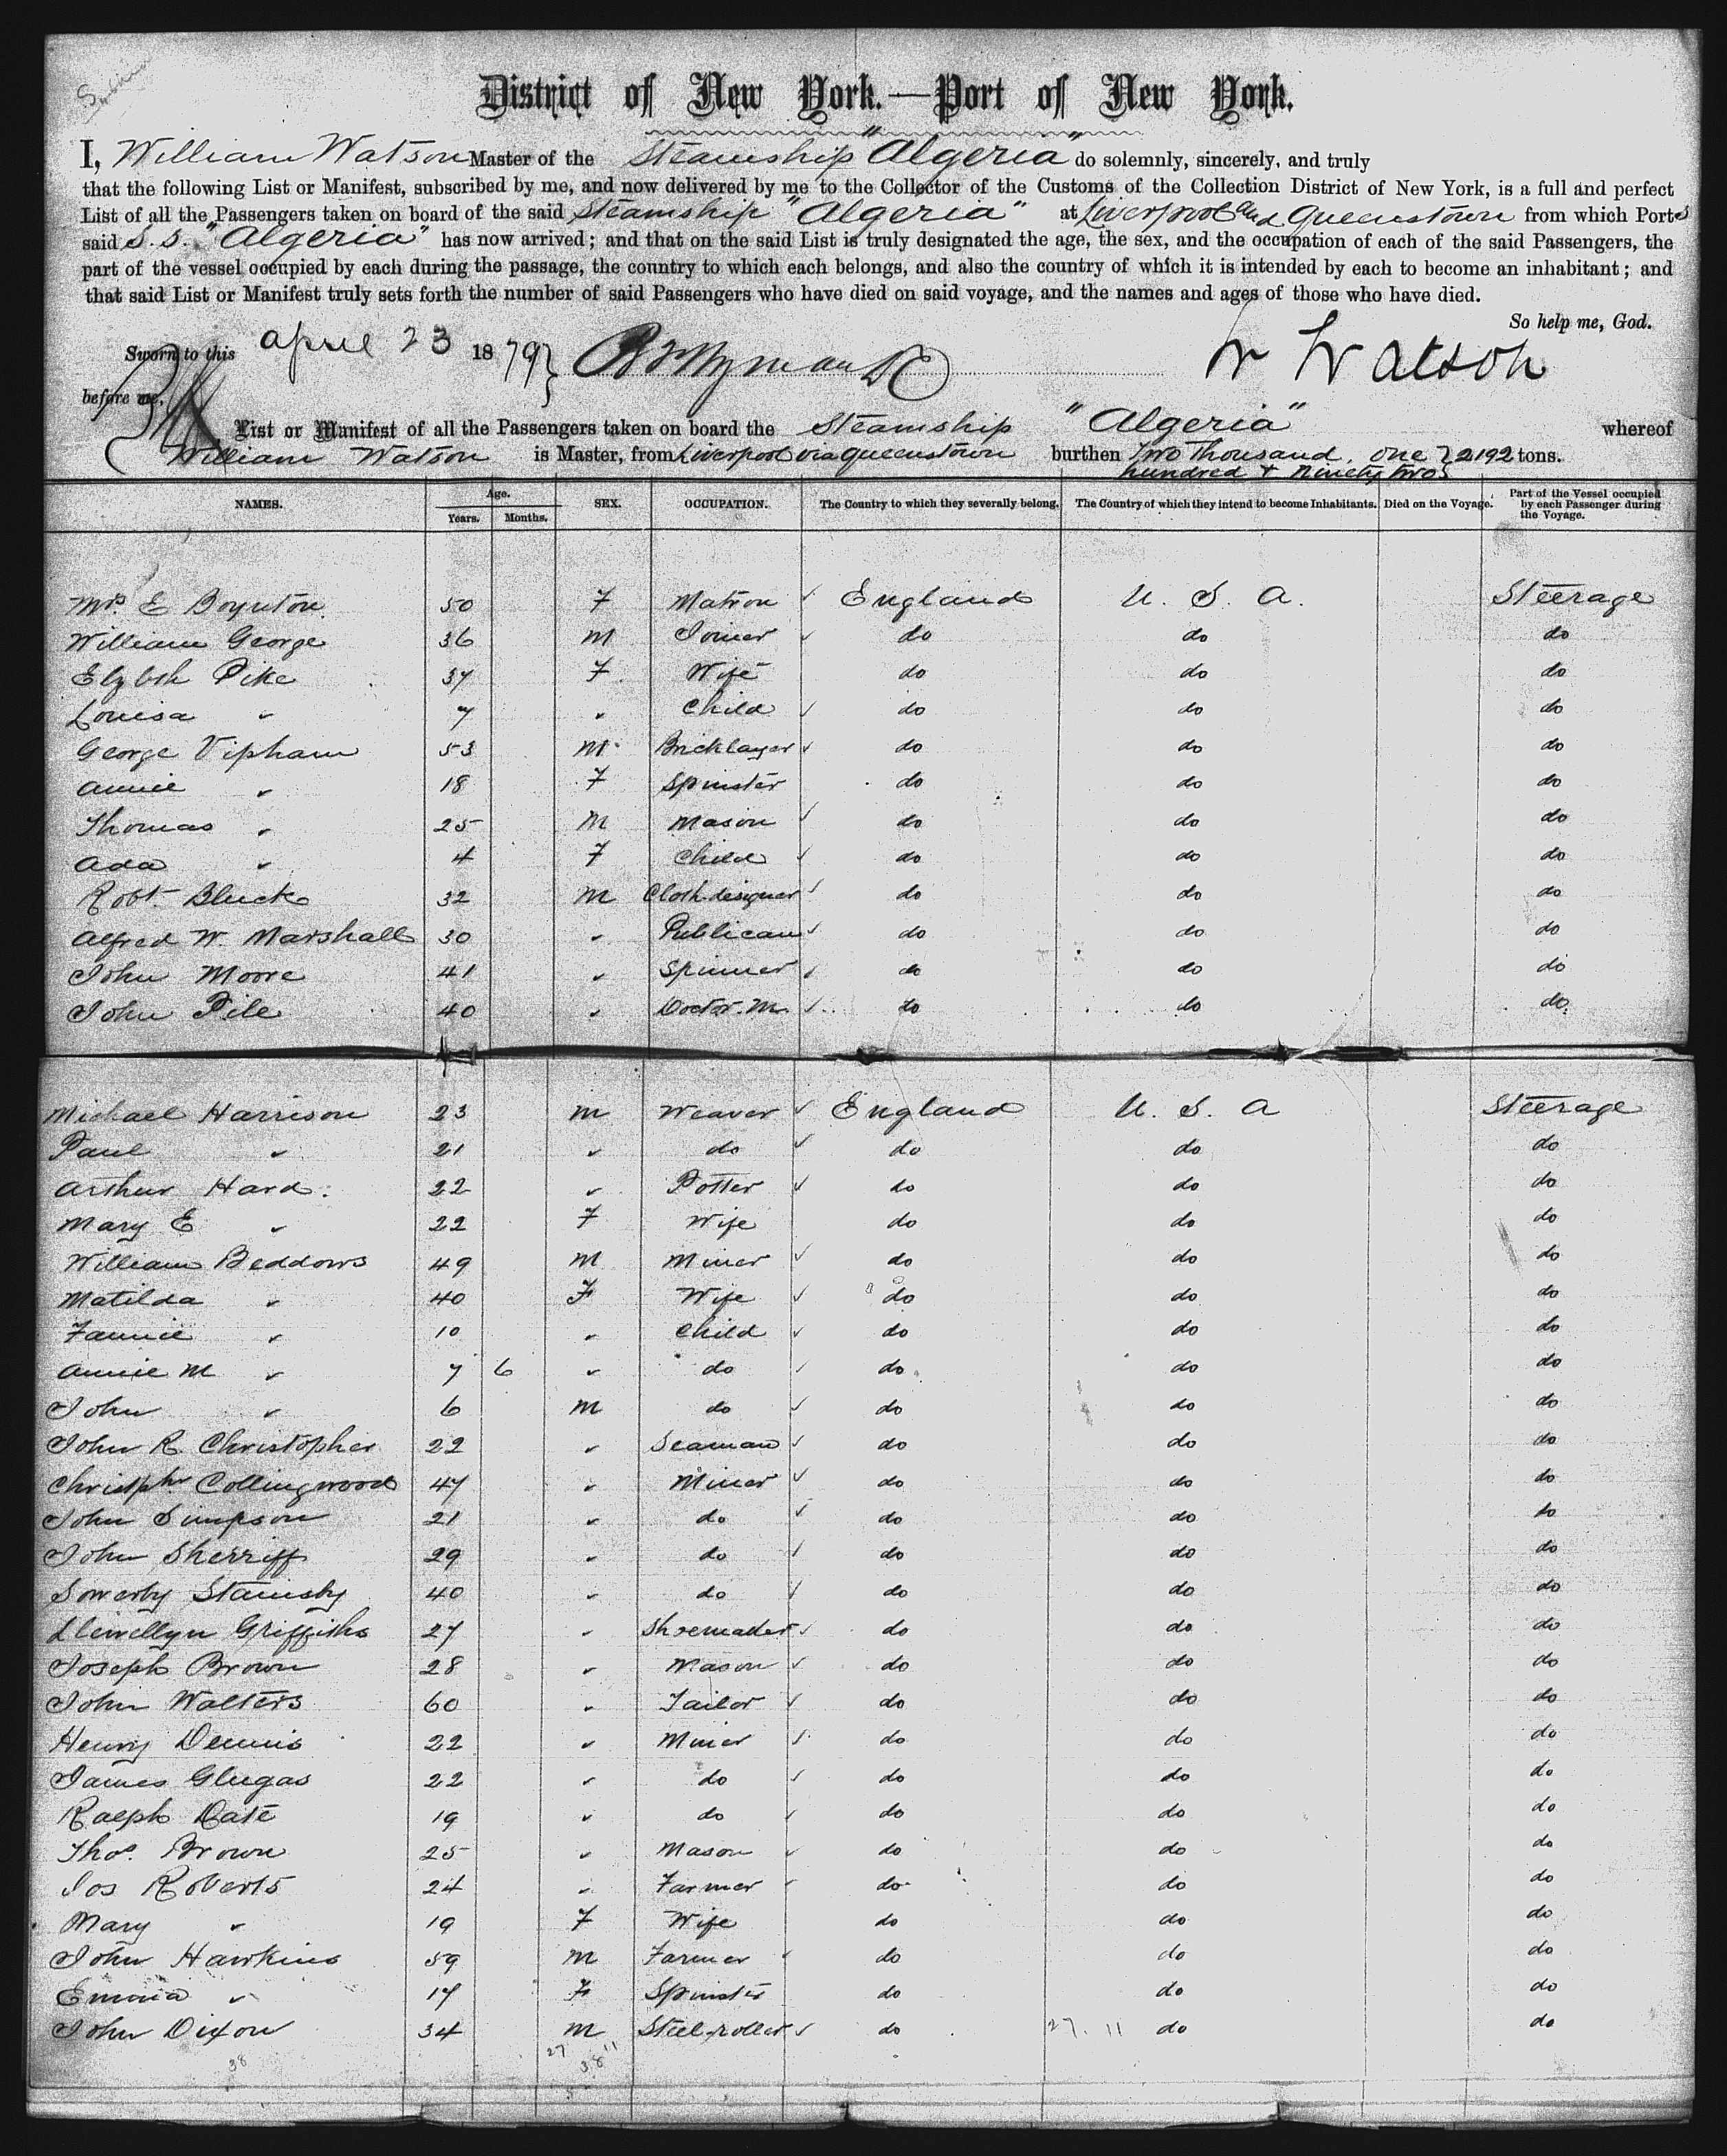 District of New York.—Port of New York.
I, William Watson Master of the Steamship "Algeria" do solemnly, sincerely, and truly
that the following List or Manifest, subscribed by me, and now delivered by me to the Collector of the Customs of the Collection District of New York, is a full and perfect
List of all the Passengers taken on board of the said Steamship "Algeria" at Liverpool and Queenstown from which Ports
said S.S. "Algeria" has now arrived; and that on the said List is truly designated the age, the sex, and the occupation of each of the said Passengers, the
part of the vessel occupied by each during the passage, the country to which each belongs, and also the country of which it is intended by each to become an inhabitant; and
that said List or Manifest truly sets forth the number of said Passengers who have died on said voyage, and the names and ages of those who have died.
So help me, God.
Sworn to this April 23 1879 W Watson
before me,
List or Manifest of all the Passengers taken on board the Steamship "Algeria" whereof
William Watson is Master, from Liverpool via Queenstown burthen Two Thousand, One 2192 tons.
hundred + Ninety two
NAMES. Age. Years. Months. SEX. OCCUPATION. The Country to which they severally belong. The Country of which they intend to become Inhabitants. Died on the Voyage. Part of the Vessel occupied by each Passenger during the Voyage.
Mrs. E Boynton 50 F Matron ✓ England U. S. A. Steerage
William George 36 M Joiner ✓ do do do
Elzbth Pike 37 F Wife do do do
Louisa " 7 " Child ✓ do do do
George Vipham 53 M Bricklayer ✓ do do do
Annie " 18 F Spinster do do do
Thomas " 25 M Mason ✓ do do do
Ada " 4 F Child ✓ do do do
Robt. Bluck 32 M Cloth designer ✓ do do do
Alfred W. Marshall 30 " Publican ✓ do do do
John Moore 41 " Spinner ✓ do do do
John Pile 40 " Doctor. M. ✓ do do do
Michael Harrison 23 M Weaver ✓ England U. S. A Steerage
Paul " 21 " do ✓ do do do
Arthur Hard. 22 " Potter ✓ do do do
Mary E " 22 F Wife do do do
William Beddows 49 M Miner ✓ do do do
Matilda " 40 F Wife ✓ do do do
Fannie " 10 " Child ✓ do do do
Annie M " 7 6 " do ✓ do do do
John " 6 M do ✓ do do do
John R. Christopher 22 " Seaman ✓ do do do
Christphr Collingwood 47 " Miner ✓ do do do
John Simpson 21 " do ✓ do do do
John Sherriff 29 " do ✓ do do do
Sowerby Stainsby 40 " do ✓ do do do
Llewellyn Griffiths 27 " Shoemaker ✓ do do do
Joseph Brown 28 " Mason ✓ do do do
John Walters 60 " Tailor ✓ do do do
Henry Dennis 22 " Miner ✓ do do do
James Glugas 22 " do ✓ do do do
Ralph Date 19 " do ✓ do do do
Thos. Brown 25 " Mason ✓ do do do
Jos Roberts 24 " Farmer ✓ do do do
Mary " 19 F Wife do do do
John Hawkins 59 M Farmer ✓ do do do
Emma " 17 F Spinster do do do
John Dixon 34 M Steel-roller ✓ do 27. 11 do do
38 27 38 11